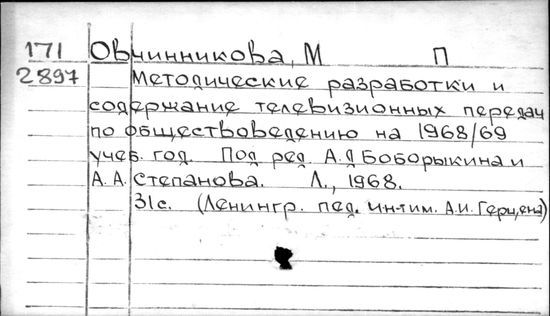 171 Овчинникова, М П
2897 Методические разработки и
содержание телевизионных передач
по обществоведению на 1968/69
учеб. год. Под ред. А.Д Боборыкина и
А. А. Степанова. Л., 1968.
31с. (Ленингр. пед. ин-т им. А.И. Герцена)